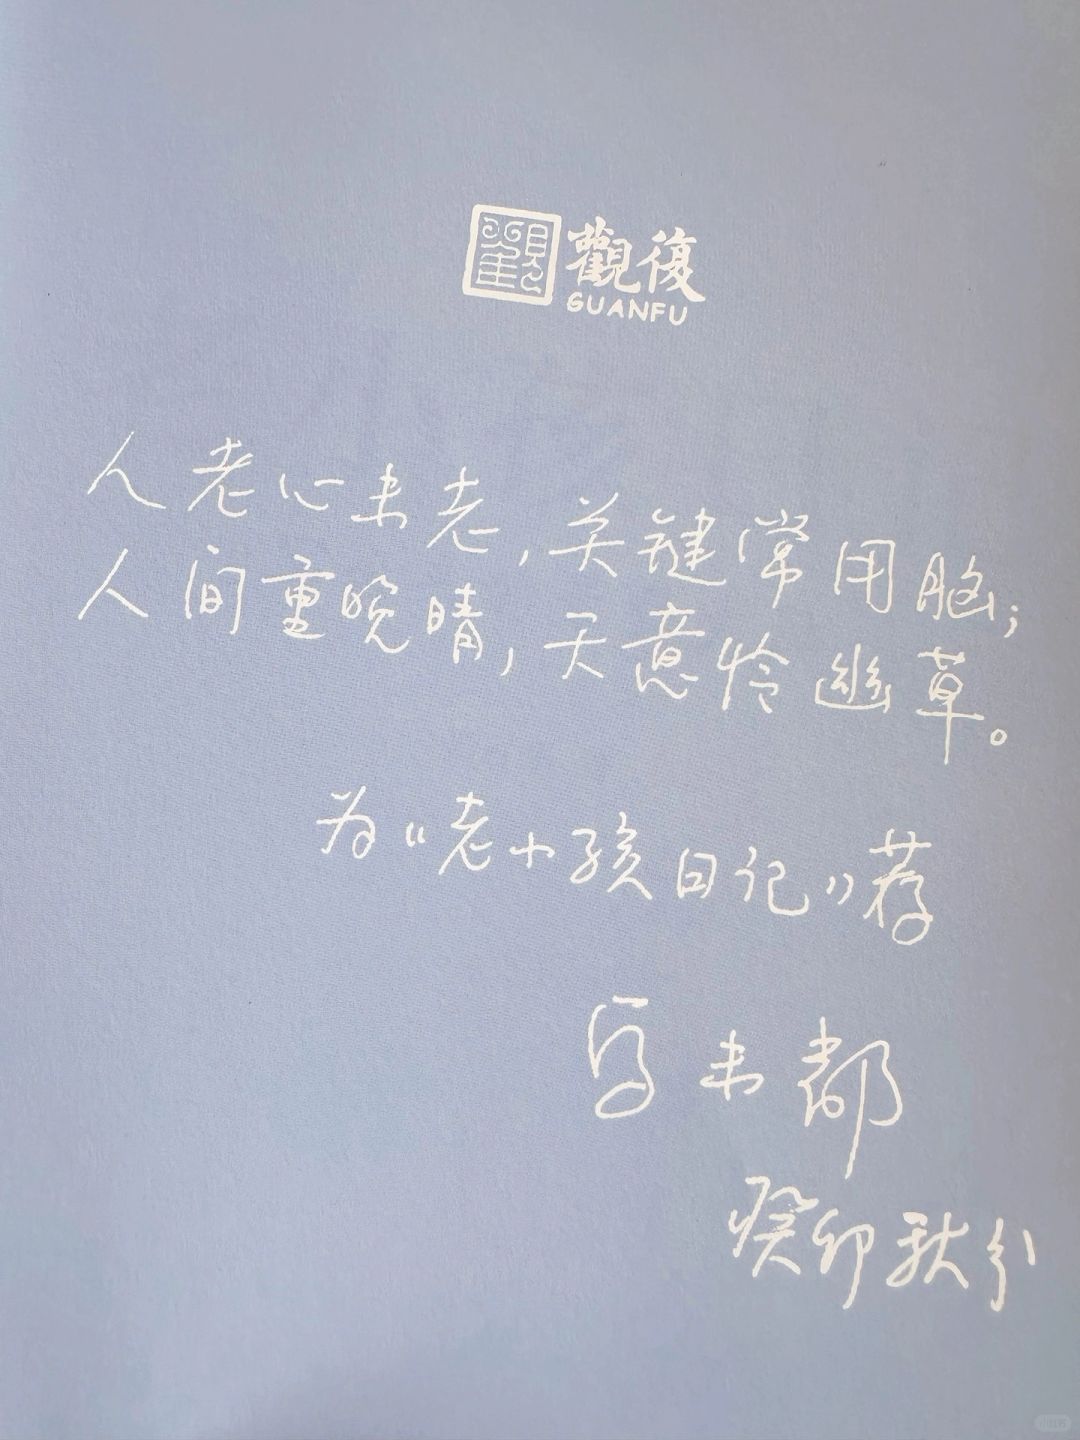 觀復
GUANFU
人老心未老，关键常用脑；
人间重晚晴，天意怜幽草。
为《老小孩日记》荐
马未都
癸卯秋分
小红书